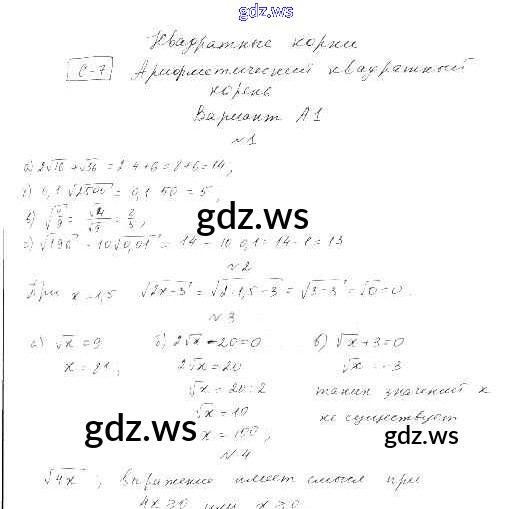 gdz.ws
Квадратные корни
С-7 Арифметический квадратный
корень
Вариант А1
№1
а) 2√16 + √36 = 2·4+6 = 8+6 = 14;
б) 0,1 √2500 = 0,1·50 = 5;
в) √(4/9) = √4/√9 = 2/3;
г) √196 - 10√0,01 = 14 - 10·0,1 = 14-1 = 13
gdz.ws
№2
При x=1,5 √2x-3 = √2·1,5-3 = √3-3 = √0 = 0.
№3
а) √x = 9 б) 2√x - 20 = 0 в) √x + 3 = 0
x = 81; 2√x = 20 √x = -3
√x = 20:2 таких значений x
√x = 10 не существует
gdz.ws x = 100; gdz.ws
№4
√4x; выражение имеет смысл при
4x ≥ 0 или x ≥ 0